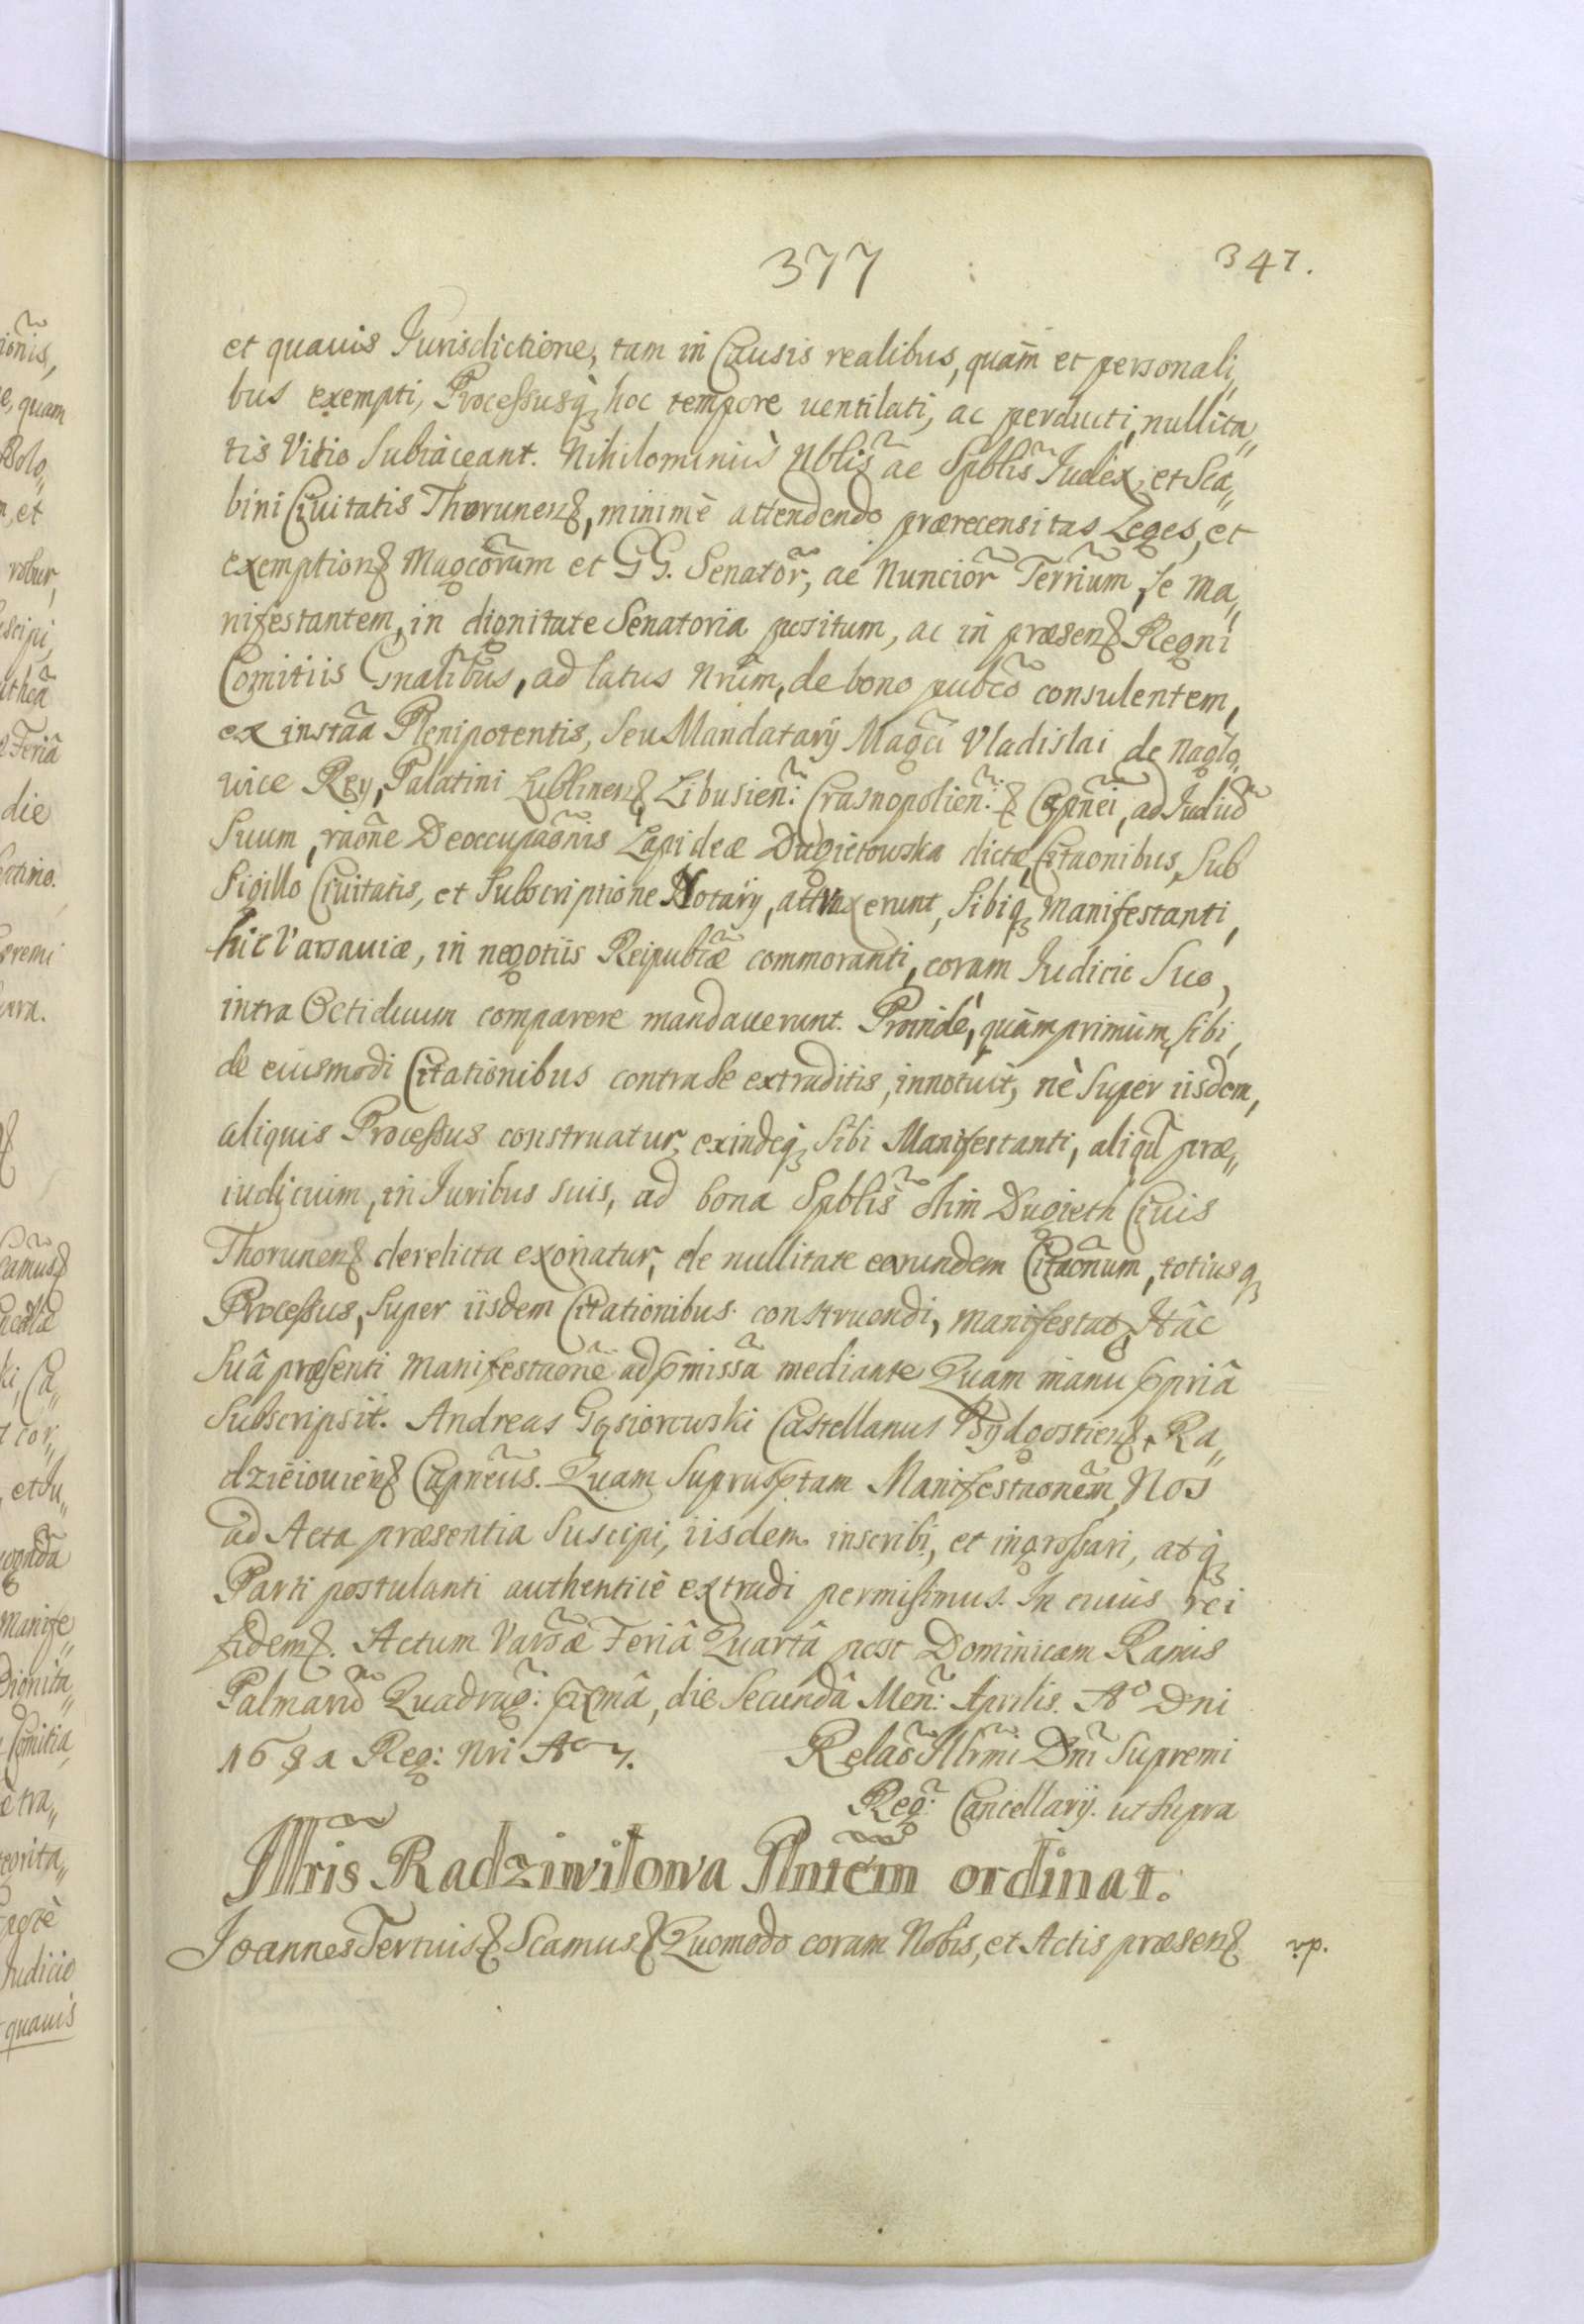 377 347.
et quauis Jurisdictione, tam in Causis realibus, quãm et personali„
bus exempti, Processusq̀ hoc tempore uentilati, ac perducti, nullita„
tis Vitio Subiaceant. Nihilominùs Nblis̃ ac Spblis̃ Judex, et Sca„
bini Ciuitatis Thorunens, minimè attendendo prærecensitas Leges, et
exemptions Magcõrum et GG. Senatõr, ac Nunciõr Terrĩum, se ma„
nifestantem, in dignitate Senatoria positum, ac in præsens Regni
Comitiis Gnalĩbus, ad latus Nrũm, de bono pubcõ consulentem,
ex instãa Plenipotentis, Seu Mandatarÿ Magcĩ Vladislai de Naglo„
uice Rey, Palatini Lublinens, Libusieñ: Crasnopolieñ: & Capnẽi, ad Judiũ
Suum, raõne Deoccupaõnis Lapideæ Dugietowska dictæ, Citaonibus, Sub
Sigillo Ciuitatis, et Subscriptione Notarÿ, attraxerunt, Sibiq Manifestanti,
hic Varsauiæ, in negotiis Reipubcæ̃ commoranti, coram Judicio Suo,
intra Octiduum comparere mandauerunt. Proindè, quàmprimùm, sibi,
de eiusmodi Citationibus contra Se extraditis, innotuit, nè Super iisdem,
aliquis Processus construatur, exindeq̀ Sibi Manifestanti, aliqd̃ præ„
iudicium, in Juribus suis, ad bona Spblis̃ olim Dugieth Ciuis
Thorunens derelicta exoriatur, de nullitate earundem Citaõnum, totiusq
Processus, Super iisdem Citationibus construendi, manifestat, Hâc
Suâ præsenti Manifestaonẽ ad pmissã mediante Quam manu ppriâ
Subscripsit. Andreas Gąsiorowski Castellanus Bydgostiens, Ra„
dzieiouiens Capnẽus. Quam Suprasptam Manifestaonẽm, Nos
ad Acta præsentia Suscipi, iisdem inscribi, et ingrossari, atq̀
Parti postulanti authenticè extradi permisimus. In cuius rei
fidem. Actum Varsæ̃ Feriâ Quartâ post Dominicam Ramis
Palmarũ Quadrag: pxmâ, die Secundâ Meñ: Aprilis. Aº Dni
1681 Reg: Nri Aº 7. Relaõ Illrmi Dnĩ Supremi
Reg: Cancellarÿ. ut Supra
Illris Radziwiłowa Plntẽm ordinat.
Joannes Tertius & Scamus & Quomodo coram Nobis, et Actis præsens